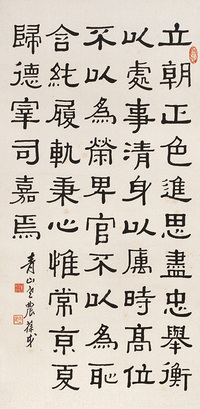 立朝正色進思盡忠舉衡
以處事清身以厲時高位
不以為榮卑官不以為恥
含純履軌秉心惟常京夏
歸德宰司嘉焉
青山老農葆戉